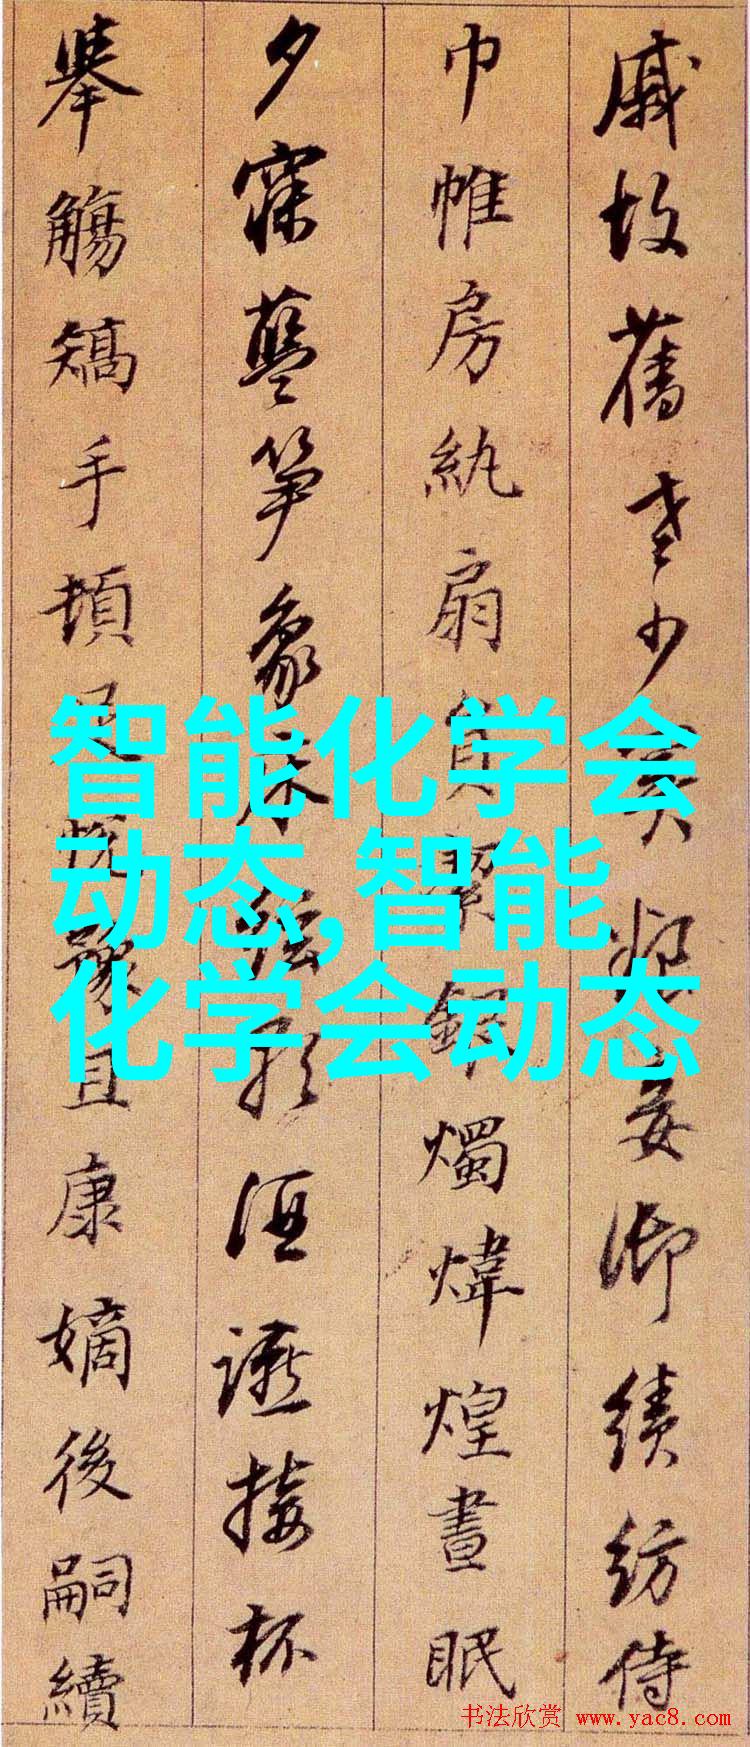 戚故舊老少異粮妾御績紡侍
巾帷房紈扇員絜銀燭煒煌晝眠
夕寐藍笋象床弦歌酒讌接杯
舉觴矯手頓足悅豫且康嫡後嗣續
智能化学会
动态,智能
化学会动态
书法欣赏 www.yac8.com